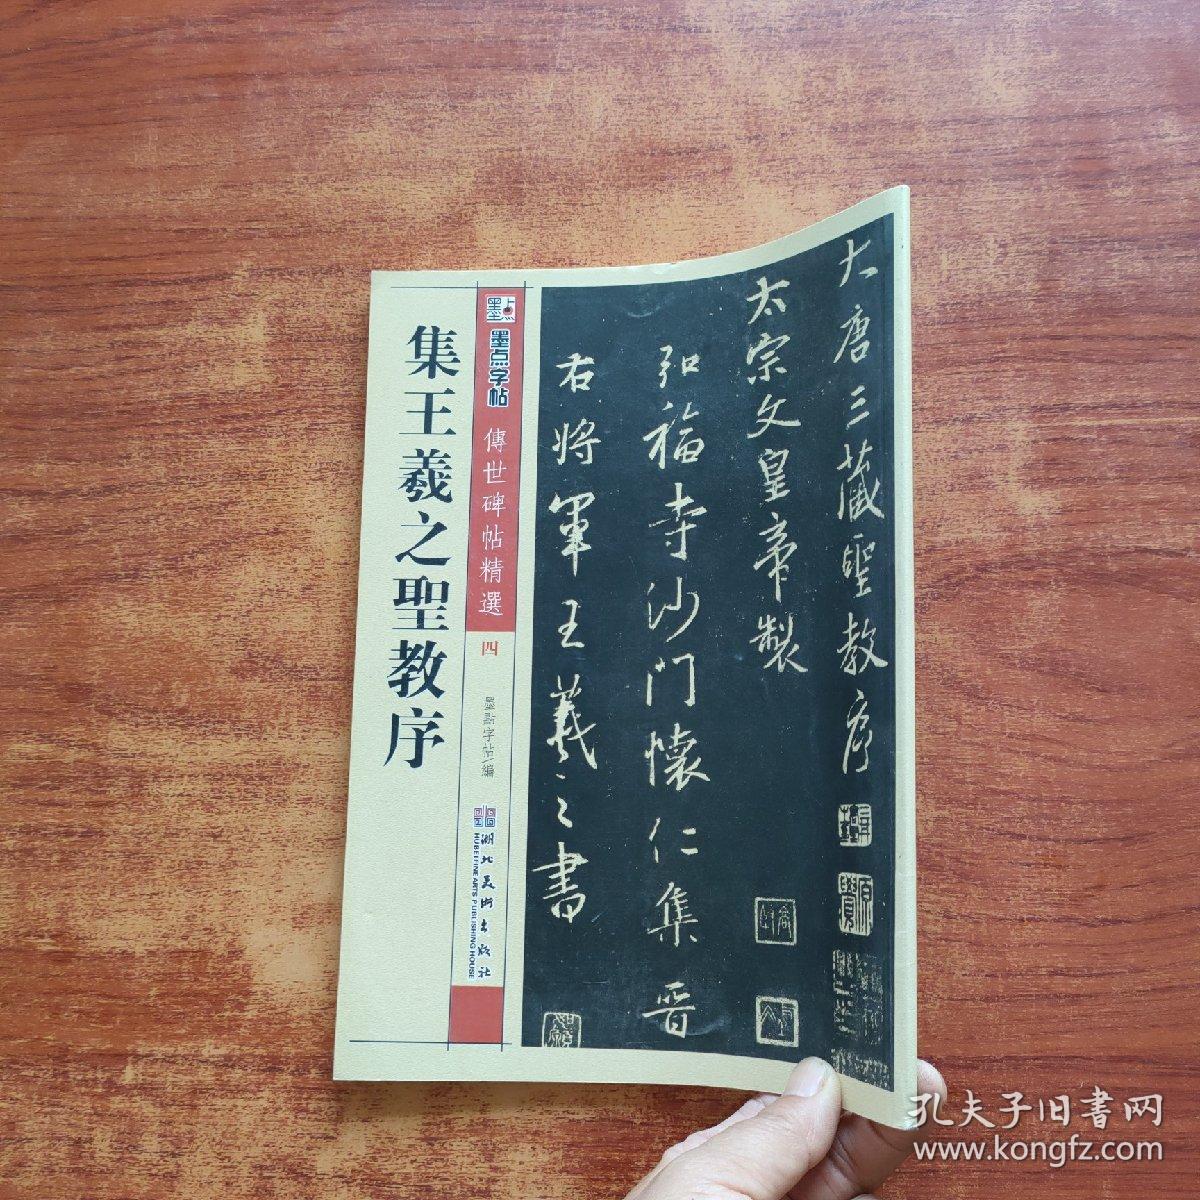 大唐三藏聖教序
太宗文皇帝製
弘福寺沙門懷仁集晉
右將軍王羲之書
墨点
墨点字帖
傳世碑帖精選
四
墨點字帖 編
湖北美術出版社
HUBEI FINE ARTS PUBLISHING HOUSE
集王羲之聖教序
孔夫子旧書网
www.kongfz.com